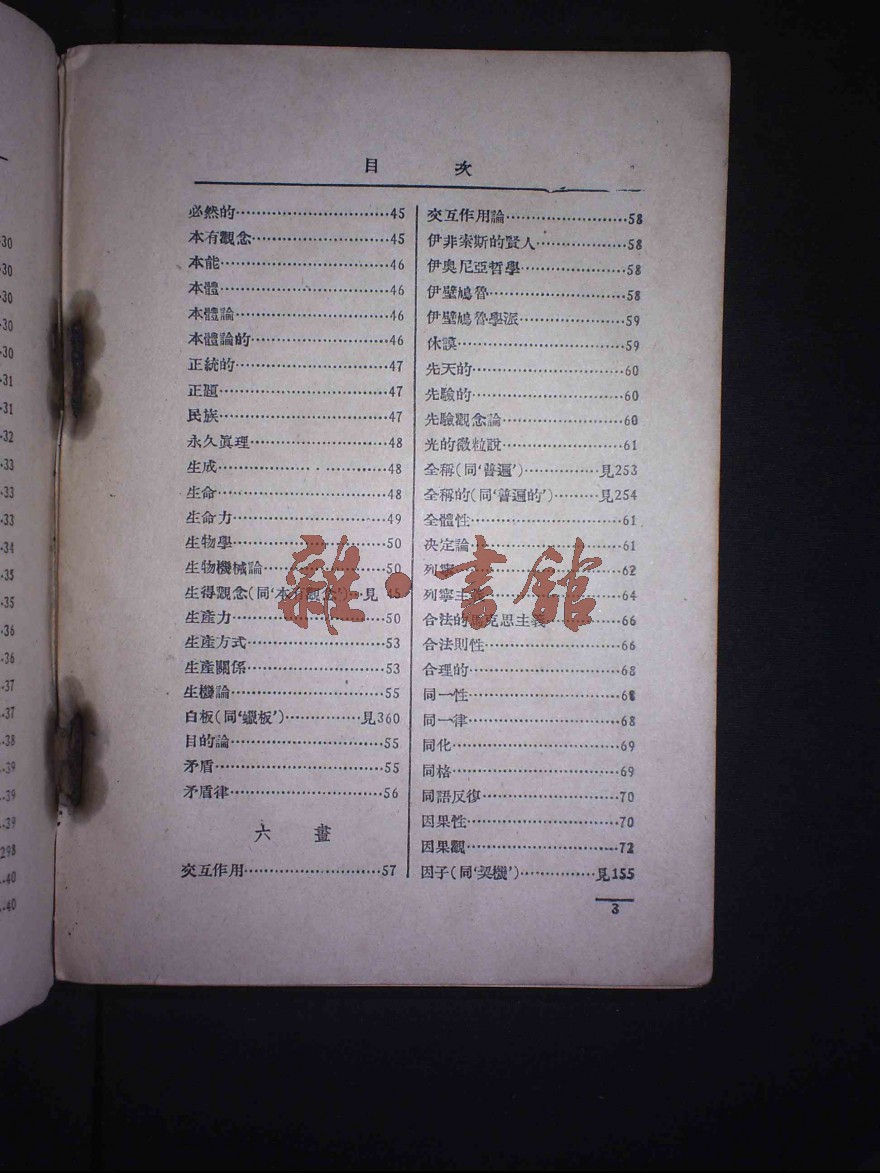 目 次
必然的⋯⋯45
本有觀念⋯⋯45
本能⋯⋯46
本體⋯⋯46
本體論⋯⋯46
本體論的⋯⋯46
正統的⋯⋯47
正題⋯⋯47
民族⋯⋯47
永久眞理⋯⋯48
生成⋯⋯48
生命⋯⋯48
生命力⋯⋯49
生物學⋯⋯50
生物機械論⋯⋯50
生得觀念(同‘本有觀念’)⋯見 45
生產力⋯⋯50
生產方式⋯⋯53
生產關係⋯⋯53
生機論⋯⋯55
白板(同‘蠟板’)⋯⋯見360
目的論⋯⋯55
矛盾⋯⋯55
矛盾律⋯⋯56
六 畫
交互作用⋯⋯57
交互作用論⋯⋯58
伊非索斯的賢人⋯⋯58
伊奧尼亞哲學⋯⋯58
伊壁鳩魯⋯⋯58
伊壁鳩魯學派⋯⋯59
休謨⋯⋯59
先天的⋯⋯60
先驗的⋯⋯60
先驗觀念論⋯⋯60
光的微粒說⋯⋯61
全稱(同‘普遍’)⋯⋯見253
全稱的(同‘普遍的’)⋯⋯見254
全體性⋯⋯61
決定論⋯⋯61
列寧⋯⋯62
列寧主義⋯⋯64
合法的馬克思主義⋯⋯66
合法則性⋯⋯66
合理的⋯⋯68
同一性⋯⋯68
同一律⋯⋯68
同化⋯⋯69
同格⋯⋯69
同語反復⋯⋯70
因果性⋯⋯70
因果觀⋯⋯72
因子(同‘契機’)⋯⋯見155
3
雜·書館
30
30
30
30
30
31
31
32
33
33
33
34
35
35
36
36
37
37
38
39
39
39
298
40
40